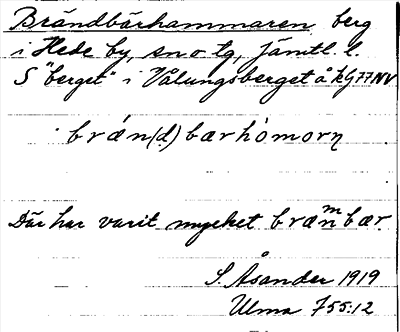 Brändbärhammaren berg
i Hede by, sn o tg, Jämtl. l.
S "berget" i Valungsberget å kG 77 NV
brǽn(d)bærhòmorn
Där har varit mycket bræmnbær.
S. Åsander 1919
Ulma 755:12